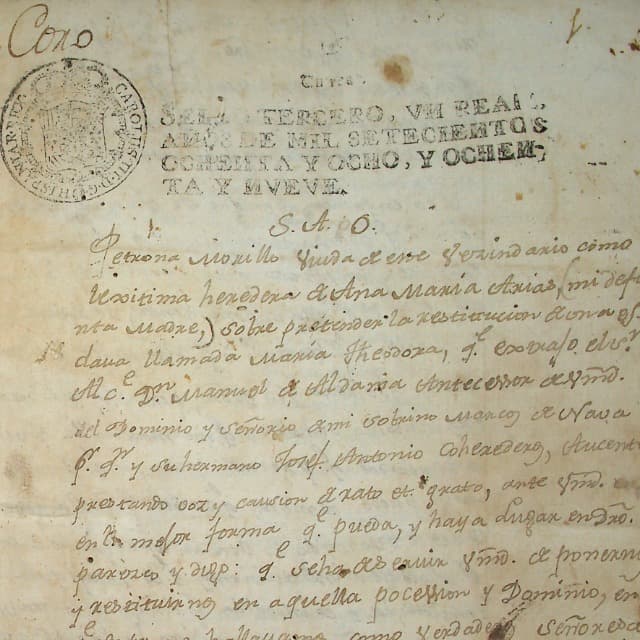 Cono
SELLO TERCERO, VN REAL,
AÑOS DE MIL SETECIENTOS
OCHENTA Y OCHO, Y OCHEN,
TA Y NVEVE.
S. A. O.
Petrona Morillo Viuda de este Vecindario como
lexitima heredera de Ana María Arias, (mi defu
nta Madre,) sobre pretender la restitucion de una es
clava llamada María Theodora, q.e extrajo el s.r
Alc.e D.n Manuel de Aldama Antecesor de Vmd.
del Dominio y señorio de mi sobrino Marcos de Nava
p.r q.n y su hermano Josef Antonio Coherederos, Aucent
prestando voz y caucion de rato et grato, ante Vmd.
en la mejor forma q.e pueda, y haya lugar en dro.
paresco y digo: q.e se ha de servir Vmd. de ponerm
y restituirnos en aquella pocession y Dominio, en
como verdadero Señor de